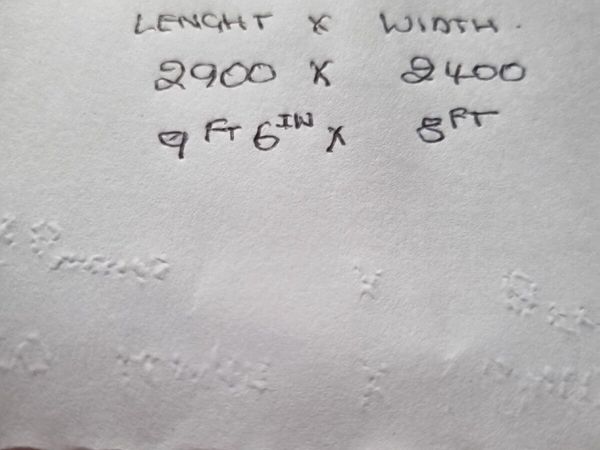 LENGHT X WIDTH.
2900 X 2400
9 FT 6 IN X 8 FT